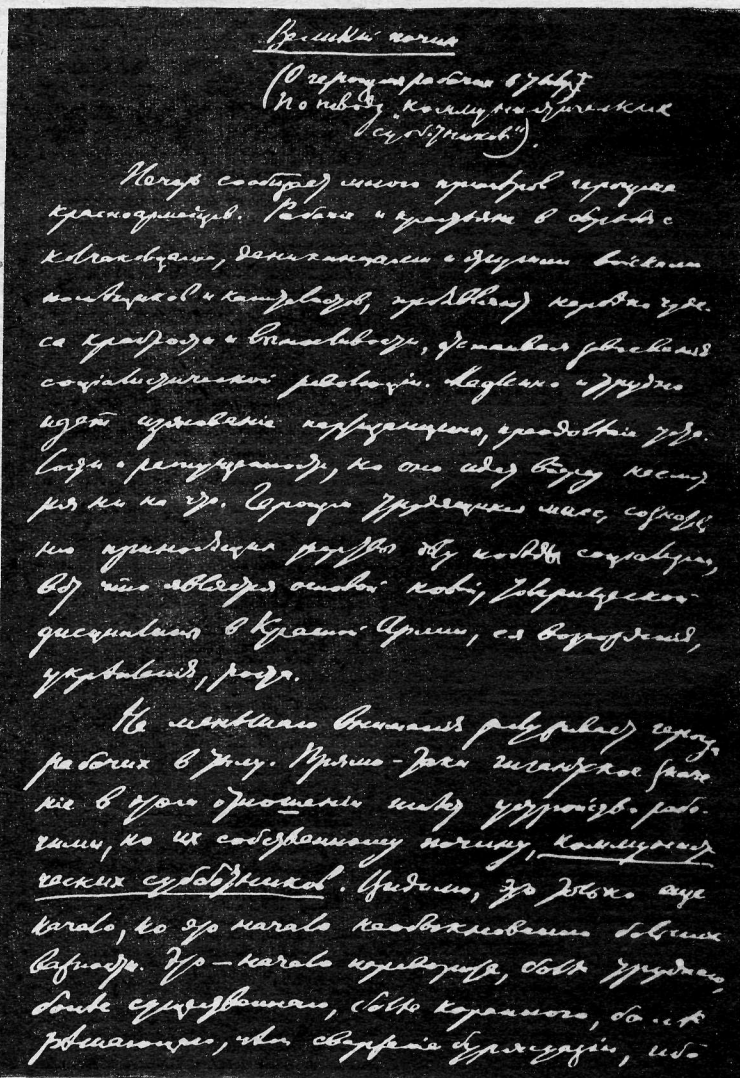 Великий почин
(О героизме рабочих в тылу.
По поводу "коммунистических
субботников").
Печать сообщает много примеров героизма
красноармейцев. Рабочие и крестьяне в борьбе с
колчаковцами, деникинцами и другими войсками
помещиков и капиталистов, проявляют нередко чуде-
са храбрости и выносливости, отстаивая завоевания
социалистической революции. Медленно и трудно
идет изживание партизанщины, преодоление уста-
лости и распущенности, но оно идет вперед несмот
ря ни на что. Героизм трудящихся масс, сознатель
но приносящих жертвы делу победы социализма,
вот что является основой новой, товарищеской
дисциплины в Красной Армии, ее возрождения,
укрѣпления, роста.
Не меньшаго внимания заслуживает героизм
рабочих в тылу. Прямо-таки гигантское значе
ніе в этом отношеніи имеет устройство рабо-
чими, по их собственному почину, коммунисти
ческих субботников. Видимо, это только еще
начало, но это начало необыкновенно большой
важности. Это — начало переворота, болѣе труднаго,
болѣе существеннаго, болѣе кореннаго, болѣе
рѣшающаго, чѣм свержение буржуазіи, ибо